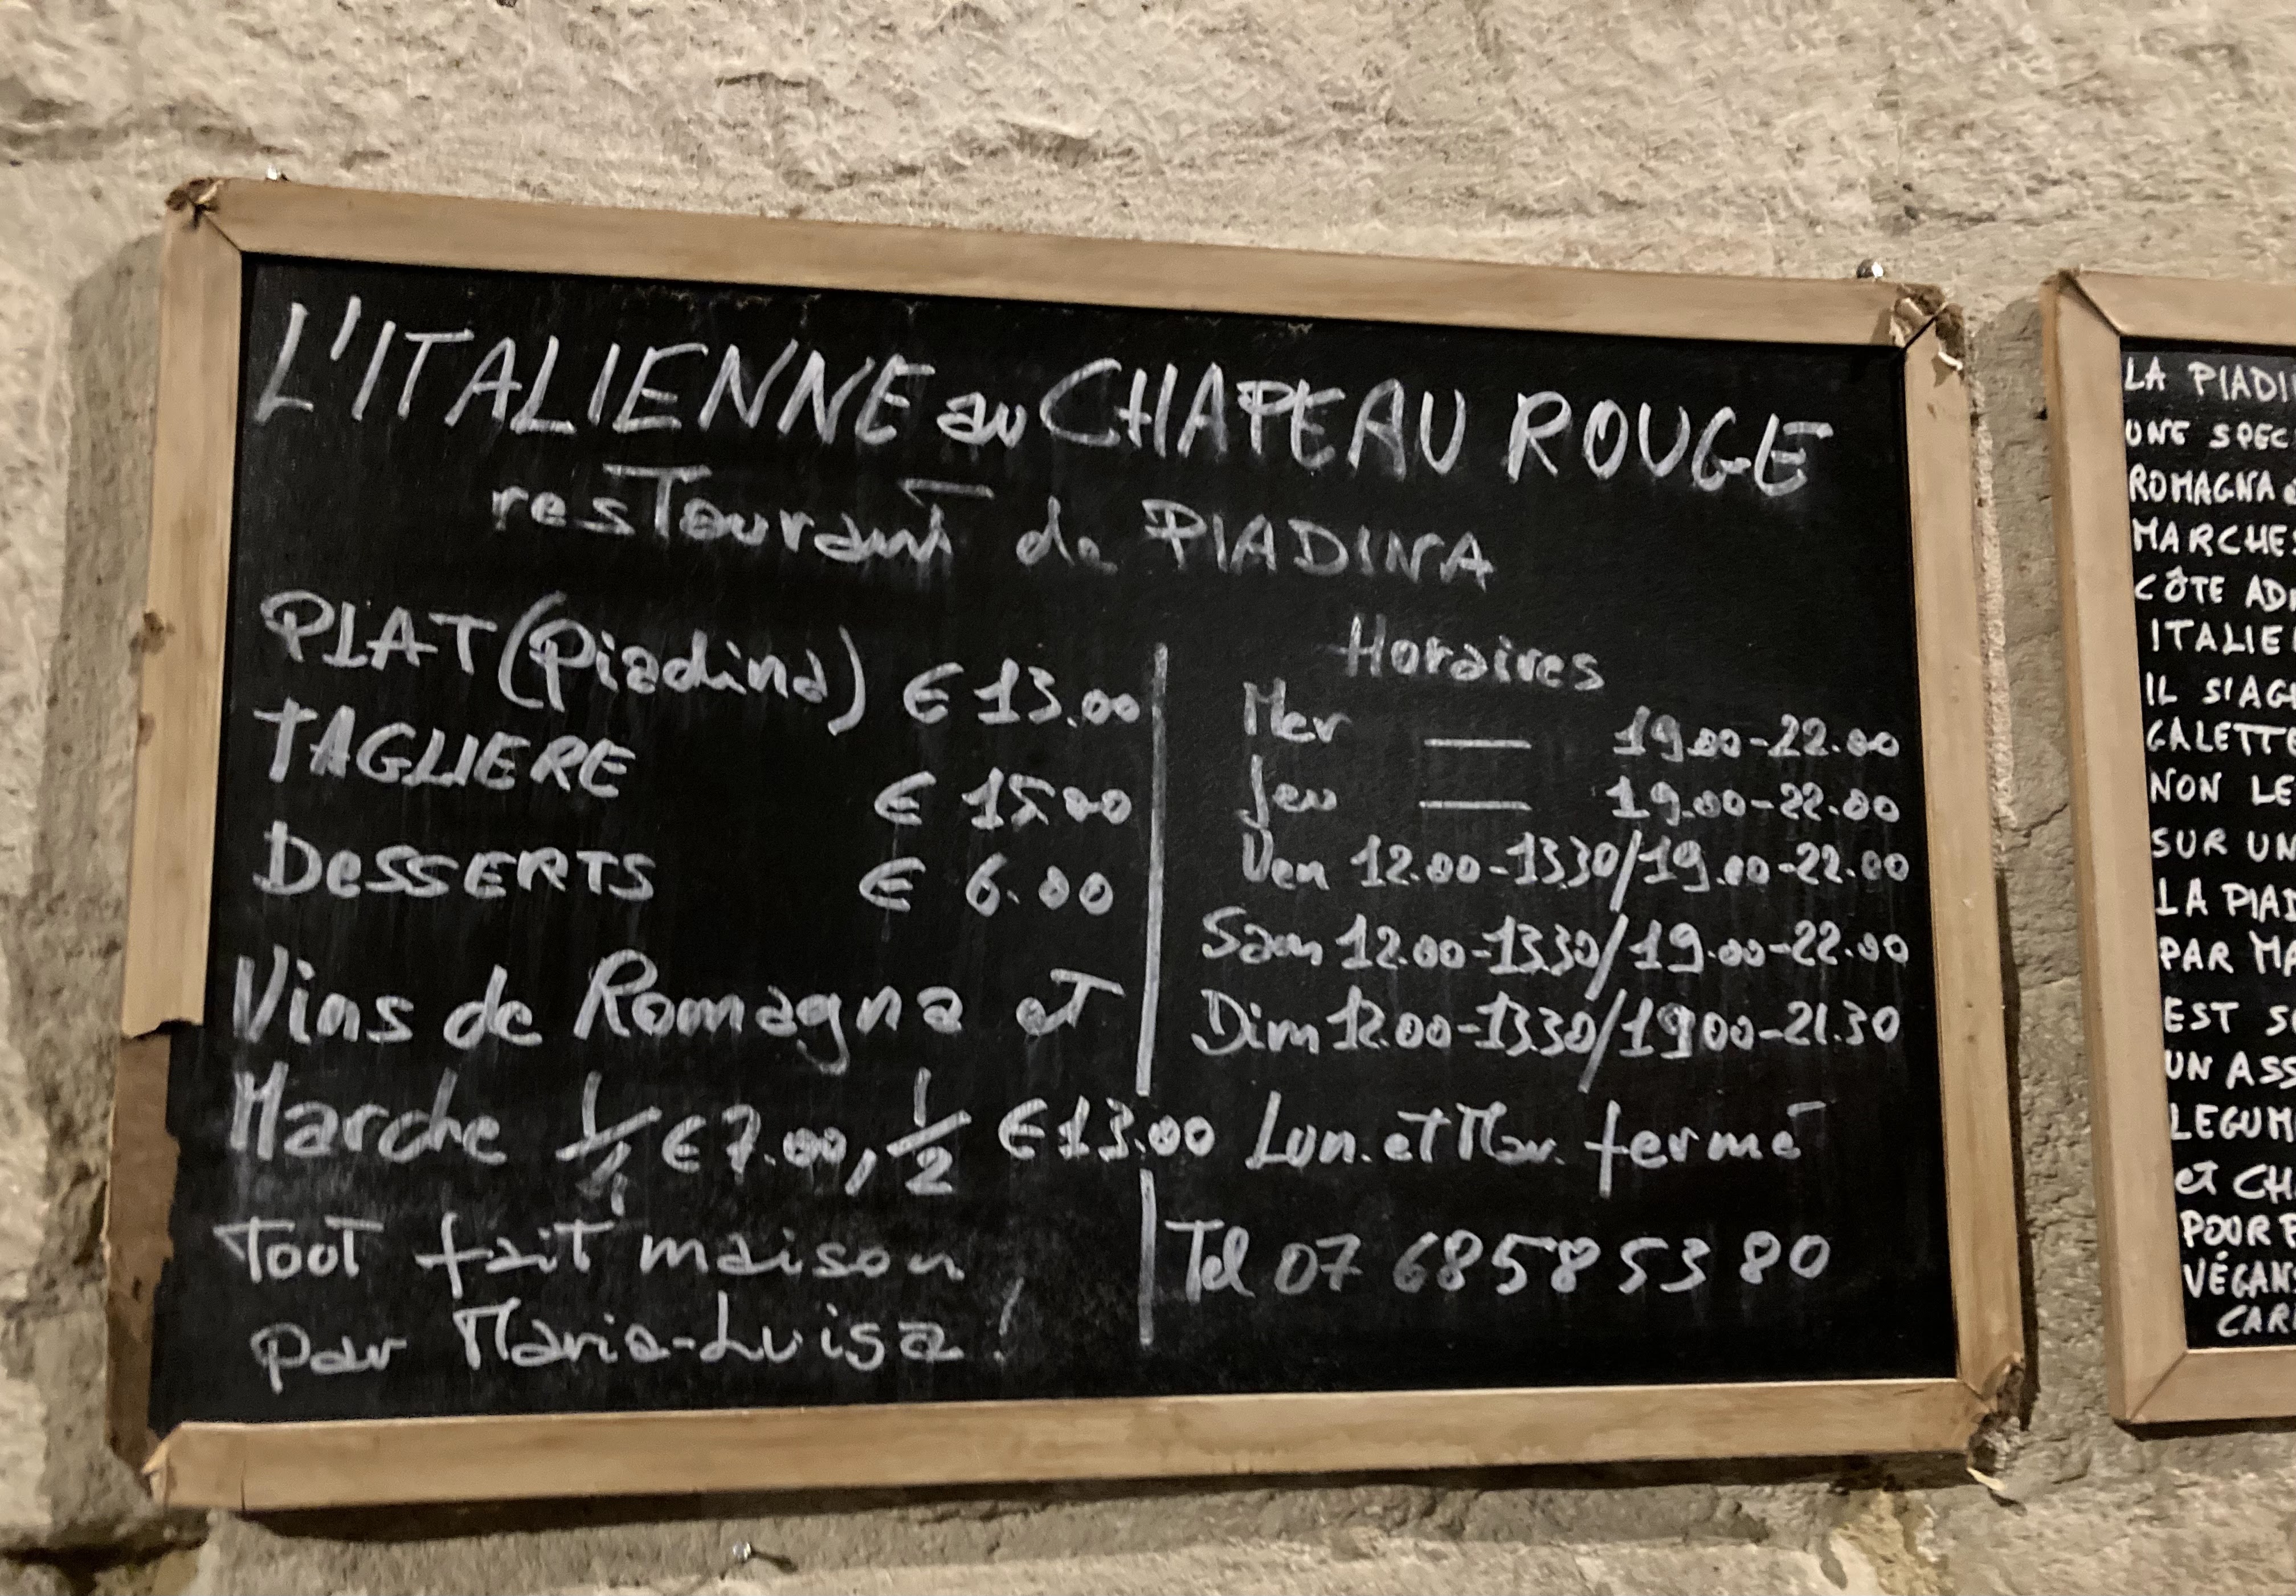 L'ITALIENNE au CHAPEAU ROUGE
restourant de PIADINA
PLAT (Piadina) € 13.00
TAGLIERE € 15.00
DeSSERTS € 6.00
Vins de Romagna et
Marche 1/4 € 7.00, 1/2 € 13.00
Tout fait maison
par Maria-Luisa!
Horaires
Mer — 19.00-22.00
Jeu — 19.00-22.00
Ven 12.00-13.30/19.00-22.00
Sam 12.00-13.30/19.00-22.00
Dim 12.00-13.30/19.00-21.30
Lun. et Mar. fermé
Tel 07 68585380
LA PIADI
UNE SPEC
ROMAGNA
MARCHES
CÔTE AD
ITALIE
IL S'AG
GALETTE
NON LE
SUR UN
LA PIAD
PAR MA
EST S
UN ASS
LEGUM
et CH
POUR
VÉGAN
CAR